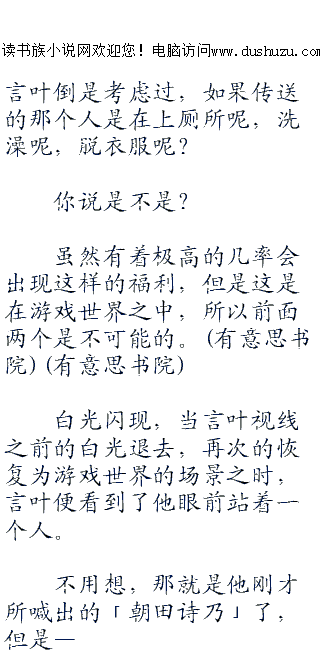 读书族小说网欢迎您！电脑访问www.dushuzu.com
言叶倒是考虑过，如果传送
的那个人是在上厕所呢，洗
澡呢，脱衣服呢？
你说是不是？
虽然有着极高的几率会
出现这样的福利，但是这是
在游戏世界之中，所以前面
两个是不可能的。(有意思书
院)(有意思书院)
白光闪现，当言叶视线
之前的白光退去，再次的恢
复为游戏世界的场景之时，
言叶便看到了他眼前站着一
个人。
不用想，那就是他刚才
所喊出的「朝田诗乃」了，
但是—